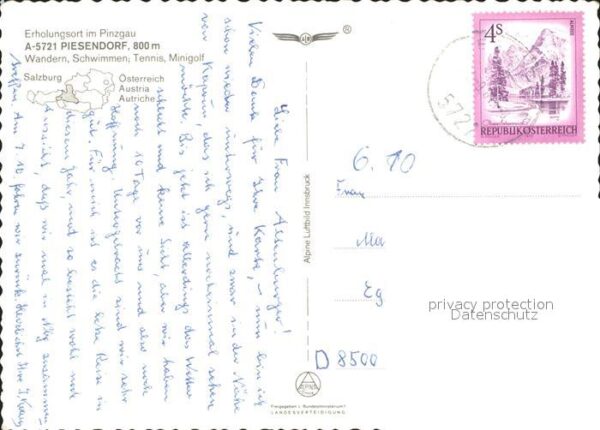 Erholungsort im Pinzgau
A-5721 PIESENDORF, 800 m
Wandern, Schwimmen, Tennis, Minigolf
Salzburg
Österreich
Austria
Autriche
Liebe Frau
Vielen Dank für Ihre Karte, – nun bin ich
schon wieder unterwegs, und zwar in der Nähe
von Kaprun, das ich gern noch einmal sehen
möchte. Bis jetzt ist allerdings das Wetter
schlecht und keine Sicht, aber wir haben
noch 10 Tage vor uns und also noch
Hoffnung. Untergebracht sind wir sehr
gut. Für mich ist es die letzte Reise in
diesem Jahr, und so besteht wohl noch
Aussicht, daß wir mal in Nbg zusammen
treffen. Am 7.10. fahren wir zurück. Herzlichst Ihre
Alpine Luftbild Innsbruck
Freigegeben v. Bundesministerium f.
LANDESVERTEIDIGUNG
4S
REPUBLIK ÖSTERREICH
5721
6.10
Frau
Ma
Eg
D 8500
privacy protection
Datenschutz